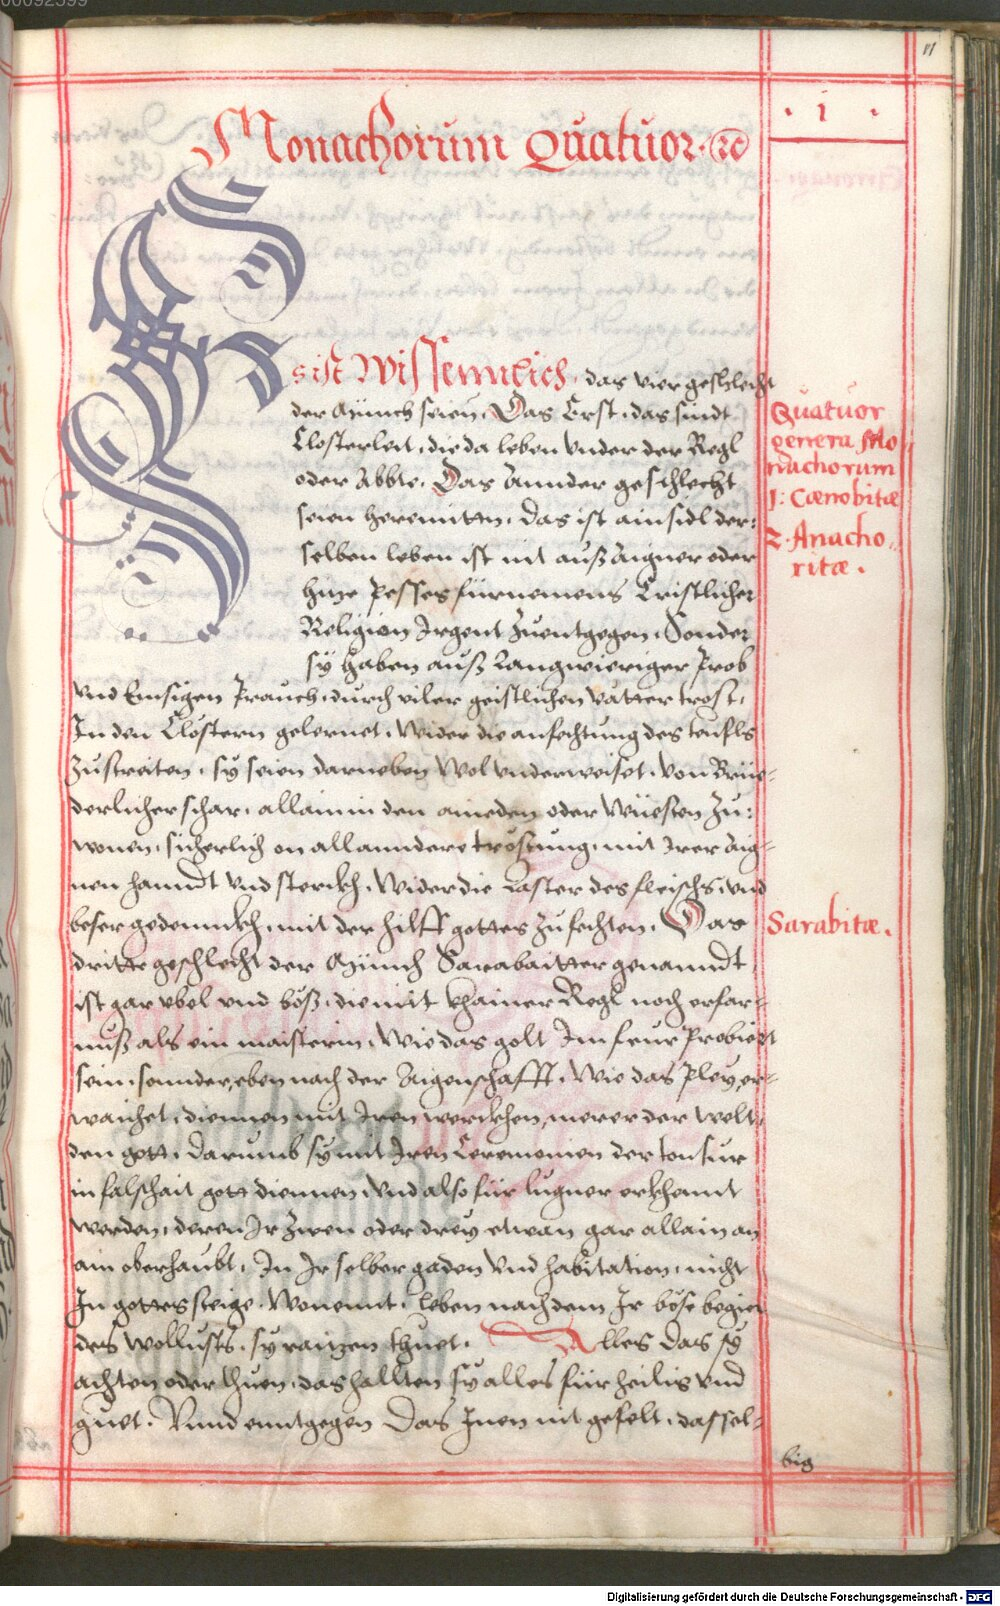 00092599
11
· 1 ·
Monachorum Quatuor · ꝛc
Es ist Wissennlich, das vier geschlecht
der Münich seien, Das Erst, das sindt
Closterleüt, die da leben vnder der Regl
oder Abbte. Das Annder geschlecht
seien heremitten, das ist ainsidl der=
selben leben ist nit auß aigner oder
hitze fürnemens Cristlicher
Religion Irgent zuentgegen, Sonder
sy haben auß langwieriger Prob
vnd Emsigen Prauch, durch viler geistlichen vätter trost,
In den Clöstern gelernet, wider die anfechtung des teufls
zustreiten, sy seien darneben wol vnderweiset, von Brüe=
derlicher schar, allain in den aineden oder Wüesten zu=
wonen, sicherlich on all anndere tröstung, mit Irer aig=
nen hanndt vnd sterckh, wider die Laster des fleischs, vnd
beser gedennckh, mit der hilff gottes zufechten. Das
dritte geschlecht der Münich Sarabaitter genanndt
ist gar vbel vnd böß, die mit khainer Regl noch erfar=
nuß als ein maisterin, Wie das golt Im feur Probiert
sein, sonnder, eben nach der Aigenschafft, wie das Pley, er=
waichet, diennen mit Iren werckhen, merer der welt,
den gott, darumb sy mit Iren Ceremonien der tonsur
in falschait gott diennen, vnd also für lugner erkhennt
werden, deren Ir zwen oder drey etwan gar allain an
ain oberhaubt, In Ir selber gaden vnd habitation, nicht
In gottes steige, wonennt, leben nach dem Ir böse begier
des wollusts, sy raitzen thuet. Alles das sy
achten oder thuen, das hallten sy alles für heilig vnd
guet. Vnnd enntgegen Das Inen nit gefelt, dassel=
big
Quatuor
genera Mo
nachorum
1: Cœnobitæ
2. Anacho=
ritæ.
Sarabitæ.
Digitalisierung gefördert durch die Deutsche Forschungsgemeinschaft - DFG